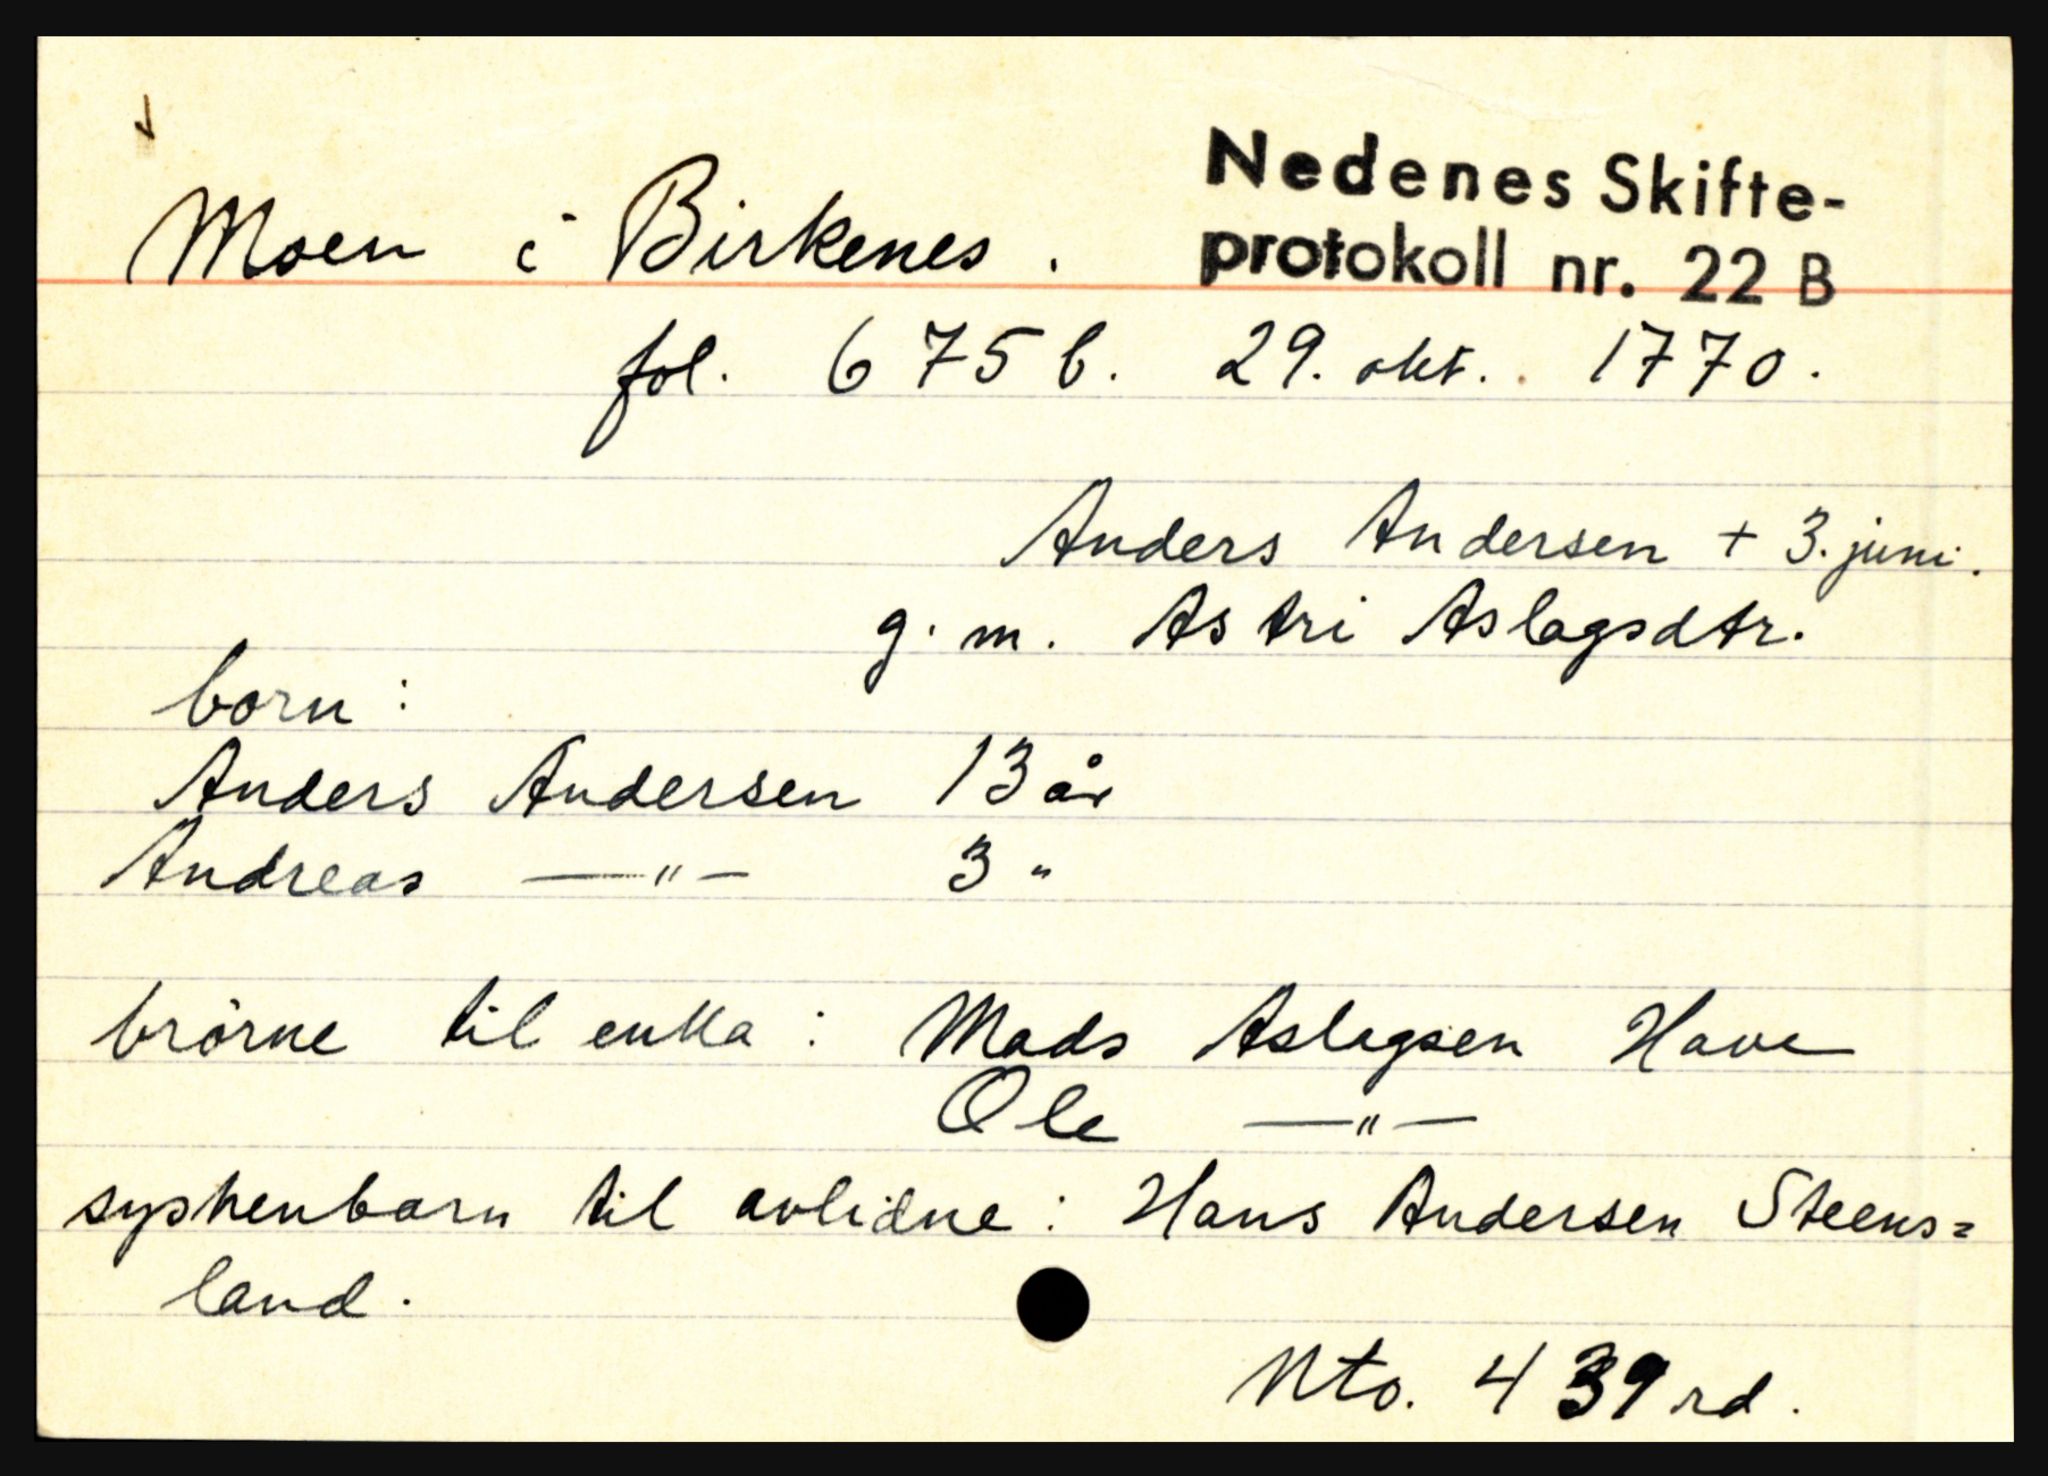 Moen i Birkenes.
Nedenes Skifte-
protokoll nr. 22 B
fol. 675 b. 29. okt. 1770.
Anders Andersen + 3. juni.
g. m. Astri Aslagsdtr.
born:
Anders Andersen 13 år
Andreas —"— 3 "
brörne til enkka: Mads Aslagsen Have
Ole —"—
syskenbarn til avlidne: Hans Andersen Steens=
land.
Nto. 439 rd.